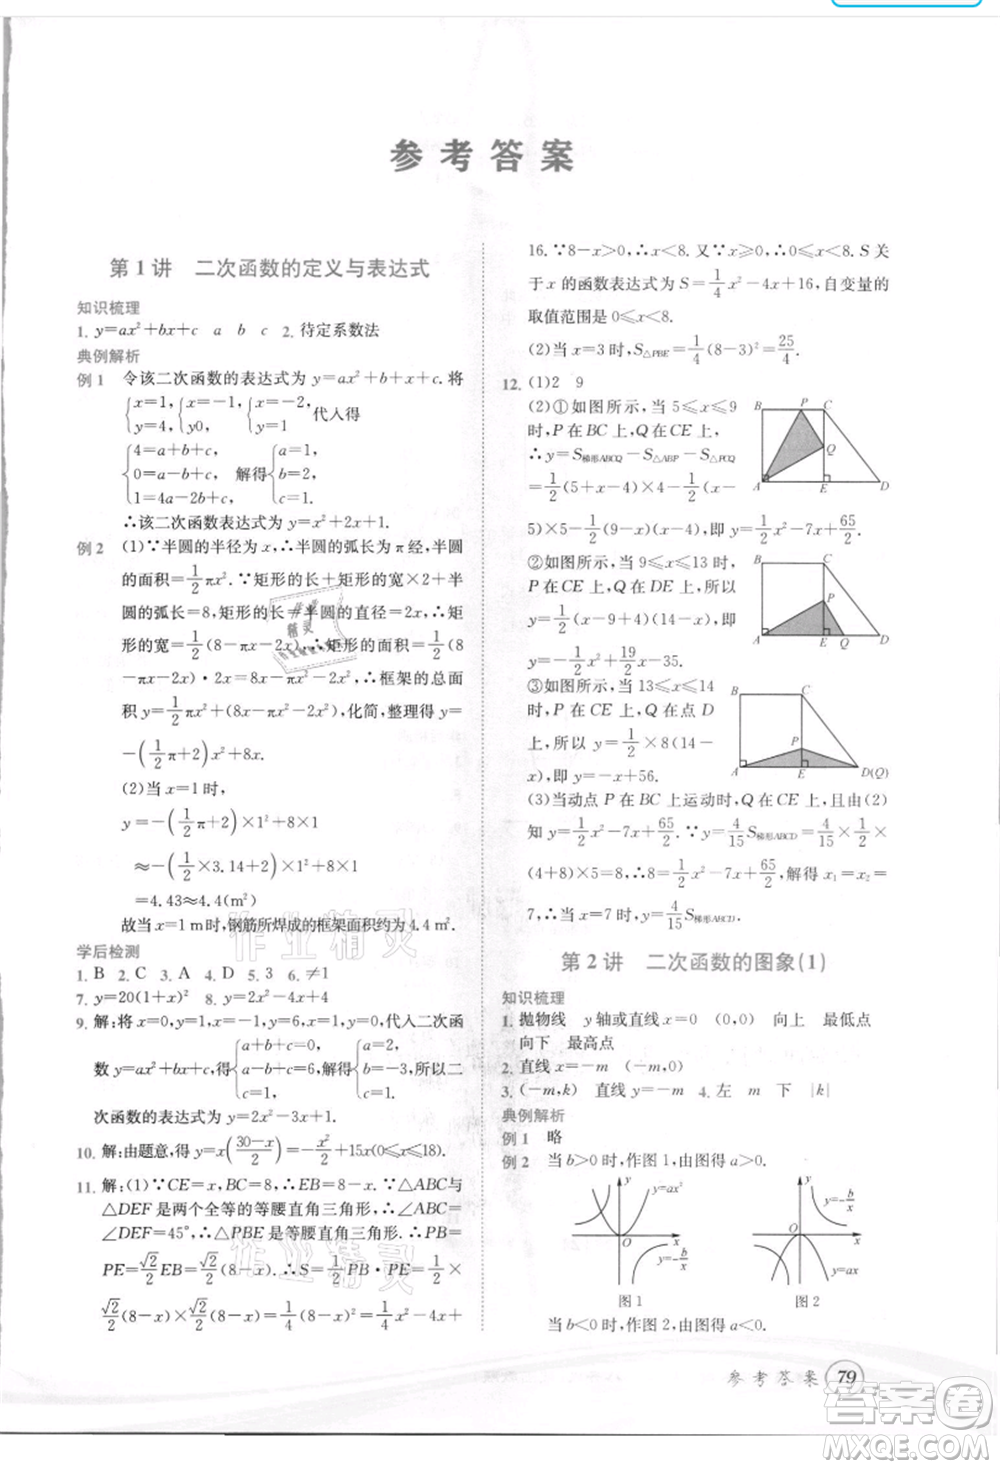 参考答案
第1讲 二次函数的定义与表达式
知识梳理
1. y=ax²+bx+c a b c 2. 待定系数法
典例解析
例1 令该二次函数的表达式为 y=ax²+bx+c. 将
{x=1, y=4, {x=-1, y0, {x=-2, y=1 代入得
{4=a+b+c, 0=a-b+c, 1=4a-2b+c, 解得{a=1, b=2, c=1.
∴该二次函数表达式为 y=x²+2x+1.
例2 (1)∵半圆的半径为 x,∴半圆的弧长为 π 经,半圆
的面积=1/2πx².∵矩形的长+矩形的宽×2+半
圆的弧长=8,矩形的长=半圆的直径=2x,∴矩
形的宽=1/2(8-πx-2x).∴矩形的面积=1/2(8
-πx-2x)·2x=(8-πx-2x)x,∴框架的总面
积 y=1/2πx²+(8x-πx²-2x²),化简,整理得 y=
-(1/2π+2)x²+8x.
(2)当 x=1 时,
y=-(1/2π+2)×1²+8×1
≈-(1/2×3.14+2)×1²+8×1
=4.43≈4.4(m²)
故当 x=1 m时,钢筋所焊成的框架面积约为4.4 m².
学后检测
1. B 2. C 3. A 4. D 5. 3 6. ≠1
7. y=20(1+x)² 8. y=-x+4
9. 解:将 x=0,y=1,x=1,y=0,代入二次函
数 y=ax²+bx+c,得{a+b+c=0, a=2+b, c=1, 解得{a=2, b=-3, c=1. 所以二
次函数的表达式为 y=2x²-3x+1.
10. 解:由题意,得 y=x(30-x/2)=-x²/2+15x(0<x<30).
11. 解:(1)∵CE=x,BC=8,∴EB=8-x.∵△ABC与
△DEF是两个全等的等腰直角三角形,∴∠ABC=
∠DEF=45°,∴△PBE 是等腰直角三角形,∴PB=
PE=√2/2EB=√2/2(8-x),∴S=1/2PB·PE=1/2×
√2/2(8-x)×√2/2(8-x)=1/4(8-x)²=1/4x²-4x+
16.∵8-x>0,∴x<8.又∵x⩾0,∴0⩽x<8.S关
于 x 的函数表达式为 S=1/4x²-4x+16,自变量的
取值范围是 0⩽x<8.
(2)当 x=3 时,S△PBE=1/4(8-3)²=25/4.
12. (1)2 9
(2)①如图所示,当 5⩽x⩽9
时,P 在 BC 上,Q 在 CE 上,
∴y=S梯形ABCQ-S△ABP-S△PCQ
=1/2(5+x-4)×4-1/2×5(x-
5)×5-1/2(9-x)(x-4),即 y=1/2x²-7x+65/2.
②如图所示,当 9⩽x⩽13 时,
P 在 CE 上,Q 在 DE 上,y=
1/2(x-9+4)(13-x),即 y=
-1/2x²+19/2x-35.
③如图所示,当 13⩽x⩽14
时,P 在 CE 上,Q 在点 D
上,所以,y=1/2×8(14-
x),即 y=-4x+56.
(3)当动点P在 BC 上运动时,Q在 CE 上,由(2)
知 y=1/2x²-7x+65/2.∵y=4/15S梯形ABCD=4/15×1/2×
(4+8)×5=8,即 8=1/2x²-7x+65/2,解得 x₁=x₂=
7,∴当 x=7 时,y=4/15S梯形ABCD.
第2讲 二次函数的图象(1)
知识梳理
1. 抛物线 y 轴或直线 x=0 (0,0) 向上 最低点
向下 最高点
2. 直线 x=-m (-m,0)
3. (-m,k) 直线 y=-m 4. 左 m 下 |k|
典例解析
例1 略
例2 当 b>0 时,作图1,由图得 a>0.
图1 图2
当 b<0 时,作图2,由图得 a<0.
参考答案 79
答案圈
MXQE.COM